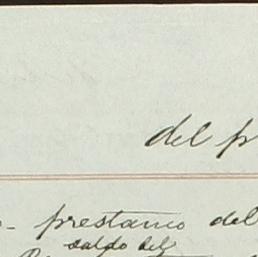 del p
- prestamo del
saldo del